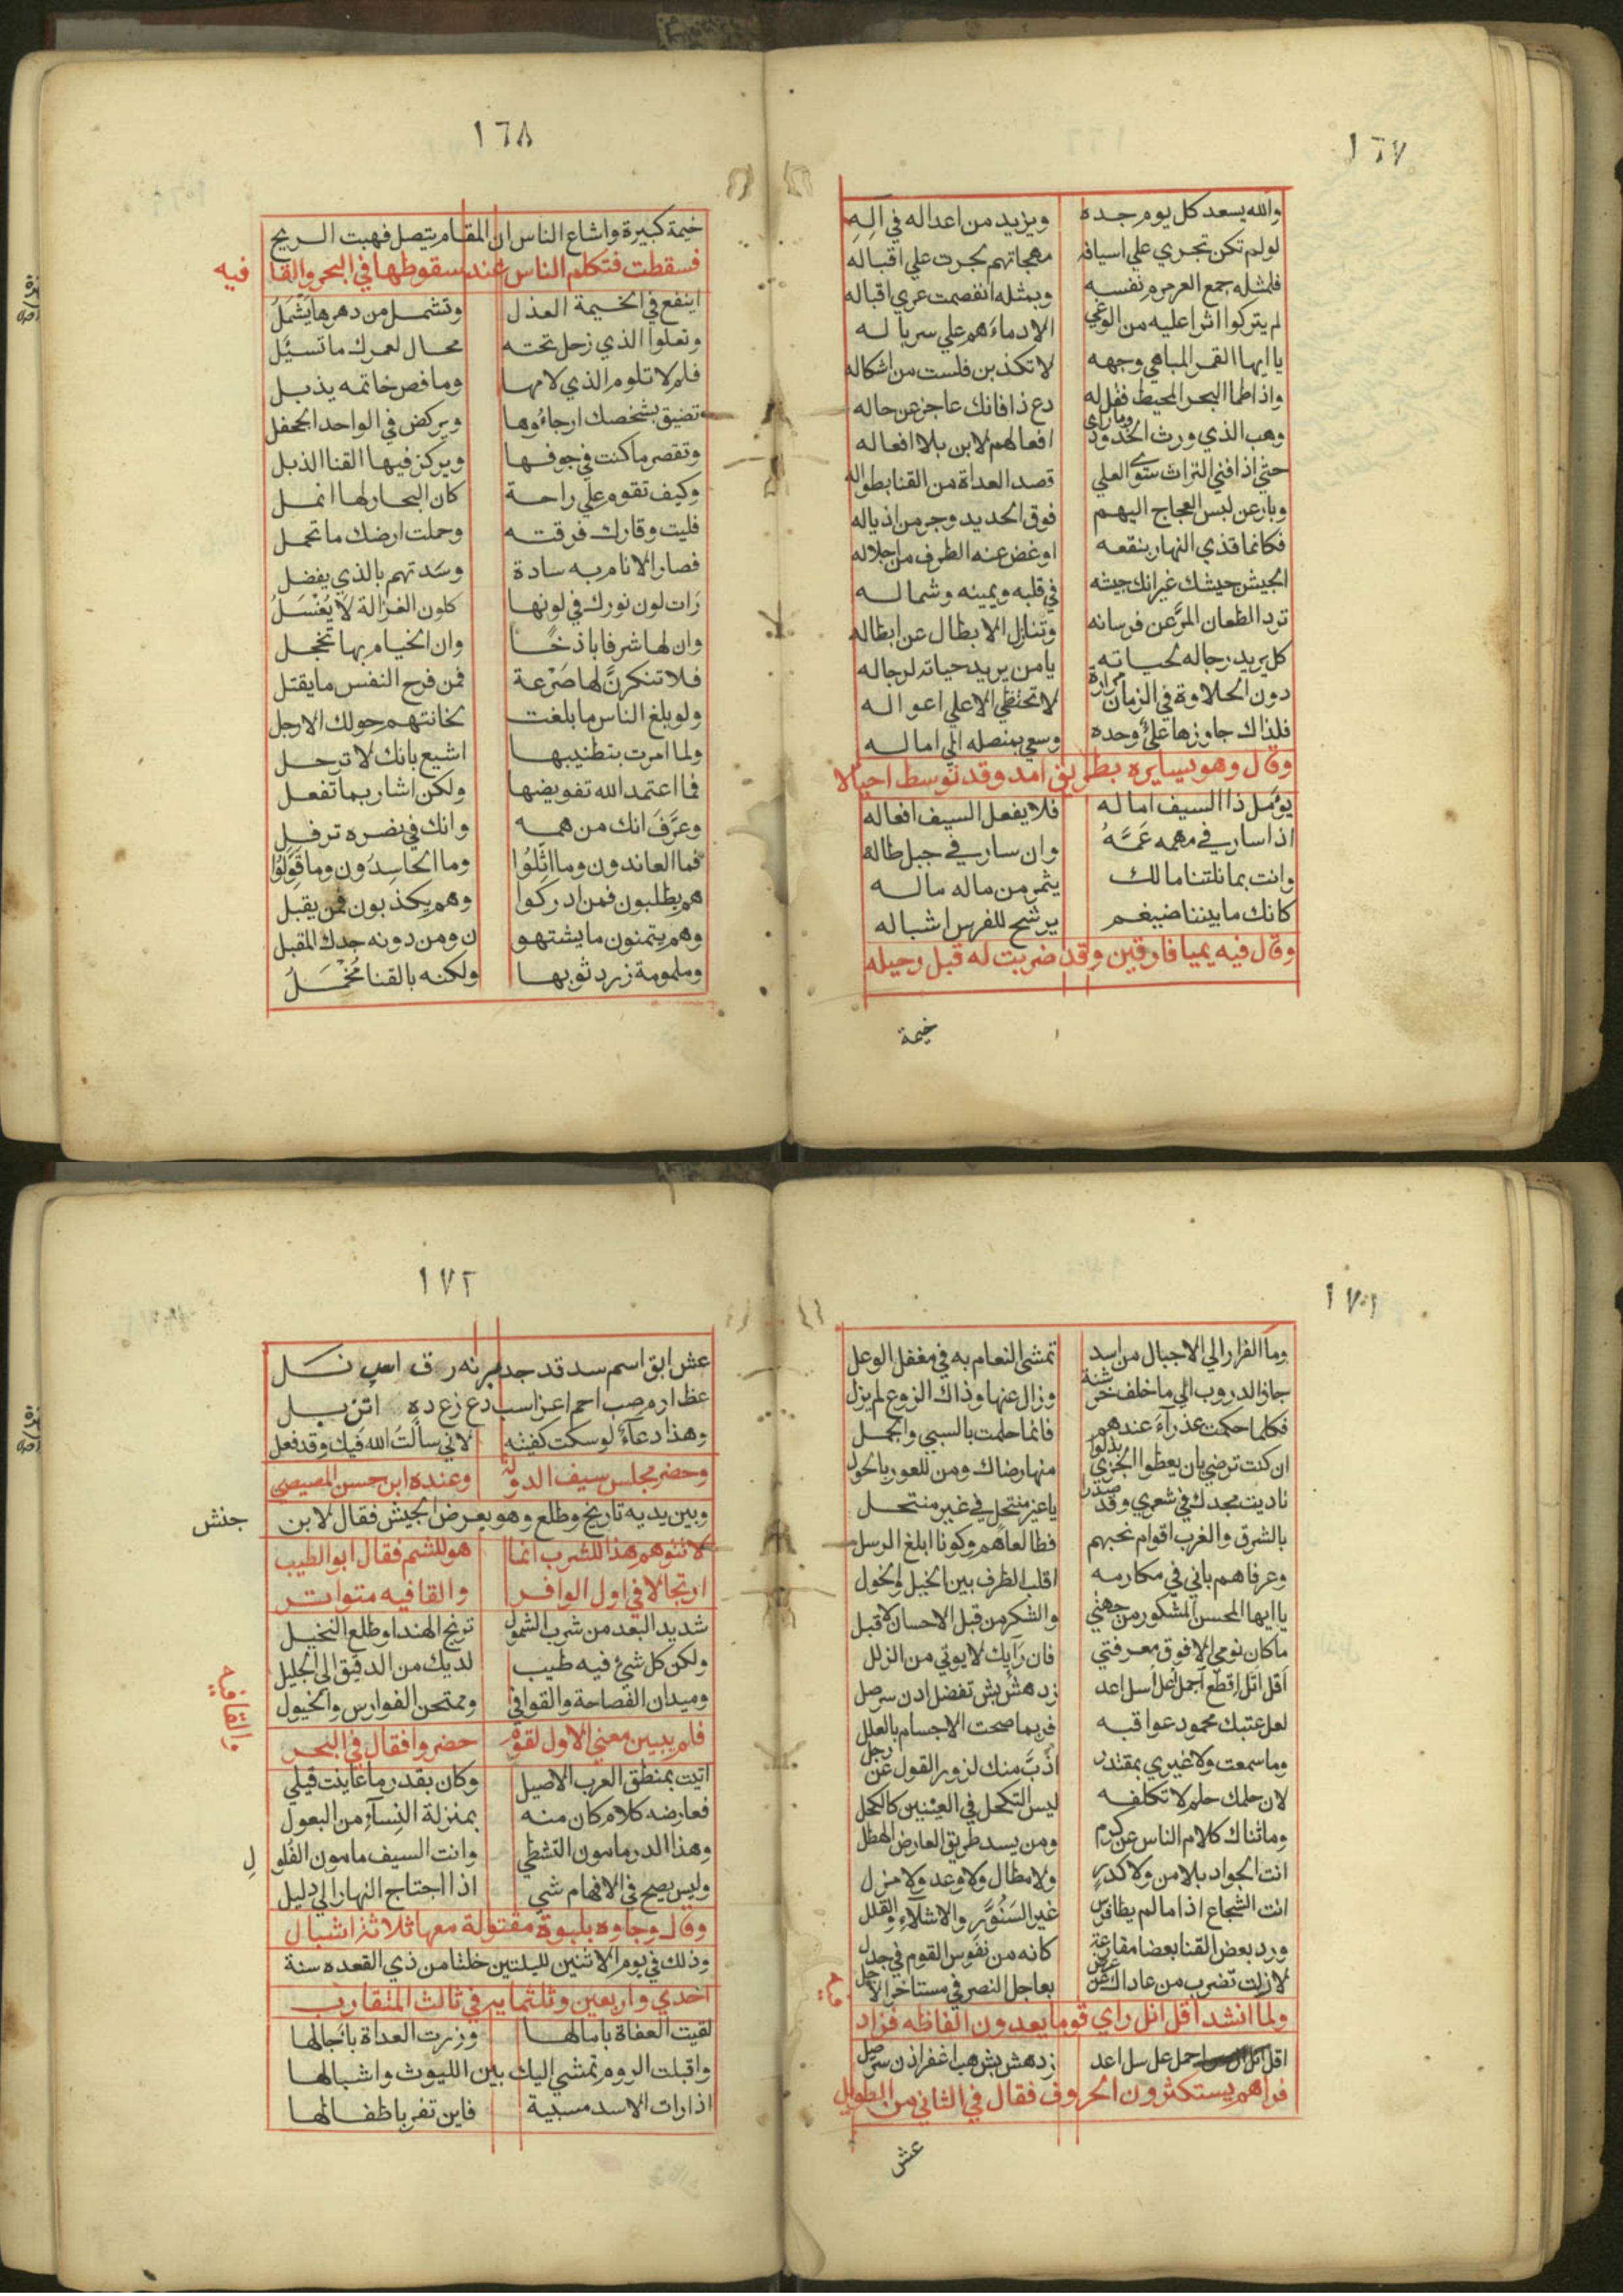 ١٦٧
والله يسعد كل يوم جده ويزيد من اعدائه في آلِهِ
لو لم تكن تجري علي اسيافه مهجاتهم لجرت علي اقباله
فلمثله جمع العرمرم نفسه وبمثله انفصمت عري اقباله
لم يتركوا اثرا عليه من الوغي الا دماءهم علي سرباله
يا ايها القمر المباهي وجهه لا تكذبن فلست من اشكاله
واذا طما البحر المحيط فقل له دع ذا فانك عاجز عن حاله
وهب الذي ورث الجدود وما راى افعالهم لابن بلا افعاله
حتي اذا فني التراث سوى العلي قصد العداة من القنا بطواله
وبارعن لبس العجاج اليهم فوق الحديد وجر من اذياله
فكانما قذي النهار بنقعه او غض عنه الطرف من اجلاله
الجيش جيشك غير انك جيشه في قلبه ويمينه وشماله
ترد الطعان المرَّ عن فرسانه وتنازل الابطال عن ابطاله
كل يريد رجاله لحياته يا من يريد حياته لرجاله
دون الحلاوة في الزمان مرارة لا تختطي الا علي اهواله
فلذاك جاوزها عليٌّ وحده وسعي بمنصله الي اماله
وقال وهو يسايره بطريق امد وقد توسط اجبالا
يؤمل ذا السيف اماله فلا يفعل السيف افعاله
اذا سار في مهمه عَمَّهُ وان سار في جبل طاله
وانت بما نلتنا مالك يثمر من ماله ماله
كانك ما بيننا ضيغم يرشح للفرس اشباله
وقال فيه بميافارقين وقد ضربت له قبل رحيله
خيمة
١٦٨
خيمة كبيرة واشاع الناس ان المقام يتصل فهبت الريح
فسقطت فتكلم الناس عند سقوطها في البحر والقا فيه
اينفع في الخيمة العذل وتشمل من دهرها يَشْمَلُ
وتعلوا الذي زحل تحته محال لعمرك ما تسئل
فلم لا تلوم الذي لامها وما فص خاتمه يذبل
تضيق بشخصك ارجاؤها ويركض في الواحد الجحفل
وتقصر ما كنت في جوفها ويركز فيها القنا الذبل
وكيف تقوم علي راحة كان البحار لها انمل
فليت وقارك فرقته وحملت ارضك ما تحمل
فصار الانام به سادة وسدتهم بالذي يفضل
رَات لون نورك في لونها كلون الغزالة لا يُغْسَلُ
وان لها شرفا باذخًا وان الخيام بها تخجل
فلا تنكرنَّ لها صَرْعة فمن فرح النفس ما يقتل
ولو بلغ الناس ما بلغت لخانتهم حولك الارجل
ولما امرت بتطنيبها اشيع بانك لا ترحل
فما اعتمد الله تقويضها ولكن اشار بما تفعل
وعرَّفَ انك من همه وانك في نصره ترفل
فما العاندون وما اثَّلُوا وما الحاسِدُون وما قَوَّلُوا
هم يطلبون فمن ادركوا وهم يكذبون فمن يقبل
وهم يتمنون ما يشتهو ن ومن دونه جدك المقبل
وملمومة زرد ثوبها ولكنه بالقنا مُخْمَلُ
١٧١
وما الفرار الي الاجبال من اسد تمشي النعام به في معقل الوعل
جاز الدروب الي ما خلف خرشنة وزال عنها وذاك الروع لم يزل
فكلما حكمت عذرآء عندهم فانما حلمت بالسبي والجمل
ان كنت ترضي بان يعطوا الجزي بذلوا منها رضاك ومن للعور بالحول
ناديت مجدك في شعري وقد صدرا يا غير منتحل في غير منتحل
بالشرق والغرب اقوام نحبهم فطالعاهم وكونا ابلغ الرسل
وعرفاهم باني في مكارمه اقلب الطرف بين الخيل والخول
يا ايها المحسن المشكور من جهتي والشكر من قبل الاحسان لا قبل
ما كان نومي الا فوق معرفتي فان رَايك لا يوتي من الزلل
اَقل اَنَل اِقطع اَحمل عَلّ سل اعد زد هش بش تفضل ادن سر صل
لعل عتبك محمود عواقبه فربما صحت الاجسام بالعلل
وما سمعت ولا غيري بمقتدر اذَبَّ منك لزور القول عن رجل
لان حلمك حلم لا تكلفه ليس التكحل في العينين كالكحل
وما ثناك كلام الناس عن كرم ومن يسد طريق العارض الهطل
انت الجواد بلا من ولا كدر ولا مطال ولا وعد ولا مزل
انت الشجاع اذا ما لم يطا فرس غير السَنَوَّرِ والاشلآءِ والقلل
ورد بعض القنا بعضا مقارعة كانه من نفوس القوم في جدل
لا زلت تضرب من عاداك عن عرض بعاجل النصر في مستاخر الاجل
ولما انشد اقل انل راي قوما يعدون الفاظه فزاد
اقل انل احمل عل سل اعد زد هش بش هب اغفر ادن سر صل
فراهم يستكثرون الحروف فقال في الثاني من الطويل
عش
١٧٢
عش ابق اسم سد قد جد مر نه ر ف اسر نل
عظ ارم صب احم اغز اسب رع زع ده اثن نل
وهذا دعآءٌ لو سكت كفيته لاني سالتُ الله فيك وقد فعل
وحضر مجلس سيف الدولة وعنده ابن حسن المصيصي
وبين يديه تاريج وطلع وهو يعرض الجيش فقال لابن جنش
لا تتوهم هذا للشرب انما هو للشم فقال ابو الطيب
ارتجالا في اول الوافر والقافيه متواتر
شديد البعد من شرب الشمول ترنج الهند او طلع النخيل
ولكن كل شئ فيه طيب لديك من الدقيق الي الجليل
وميدان الفصاحة والقوافي وممتحن الفوارس والخيول
فلم يبين معني الاول لقوم حضروا فقال في البحر والقافيه
اتيت بمنطق العرب الاصيل وكان بقدر ما عاينت قيلي
فعارضه كلام كان منه بمنزلة النِسآءِ من البعول
وهذا الدر مامون التشظي وانت السيف مامون الفُلُو لِ
وليس يصح في الافهام شي اذا احتاج النهار الي دليل
وقال وجاوه بلبوة مقتولة معها ثلاثة اشبال
وذلك في يوم الاثنين لليلتين خلتا من ذي القعده سنة
احدي واربعين وثلثمايه في ثالث المتقارب
لقيت العفاة بامالها وزرت العداة باجالها
واقبلت الروم تمشي اليك بين الليوث واشبالها
اذا رات الاسد مسبية فاين تفر باطفالها